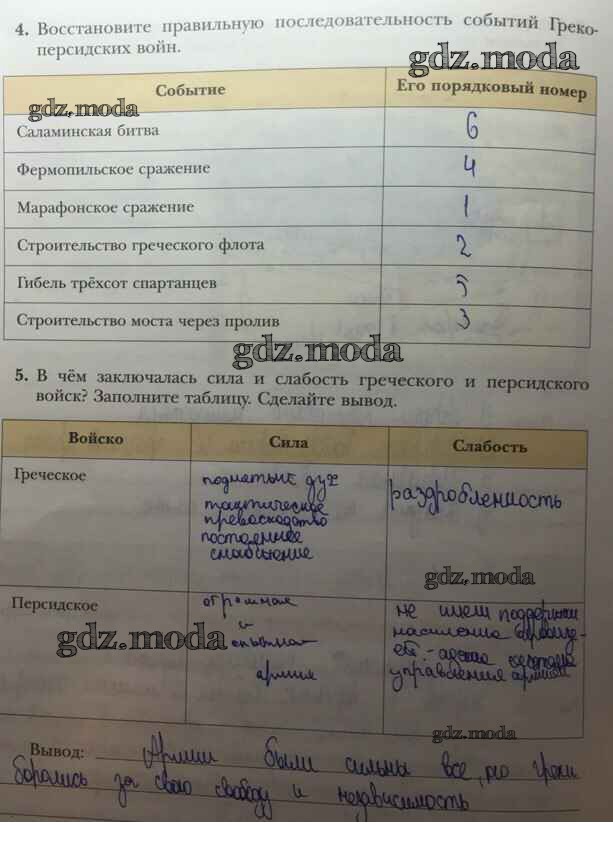 4. Восстановите правильную последовательность событий Греко-
персидских войн.
gdz.moda
Событие
Его порядковый номер
gdz.moda
Саламинская битва
6
Фермопильское сражение
4
Марафонское сражение
1
Строительство греческого флота
2
Гибель трёхсот спартанцев
5
Строительство моста через пролив
3
gdz.moda
5. В чём заключалась сила и слабость греческого и персидского
войск? Заполните таблицу. Сделайте вывод.
Войско
Сила
Слабость
Греческое
поднатый дух
тактическое
превосходство
постоянное
снабжение
раздробленность
gdz.moda
Персидское
огромная
и
опытная
армия
не имели поддержки
населения
управления армией
gdz.moda
gdz.moda
Вывод: Армии были сильны все, но греки
боролись за свою свободу и независимость